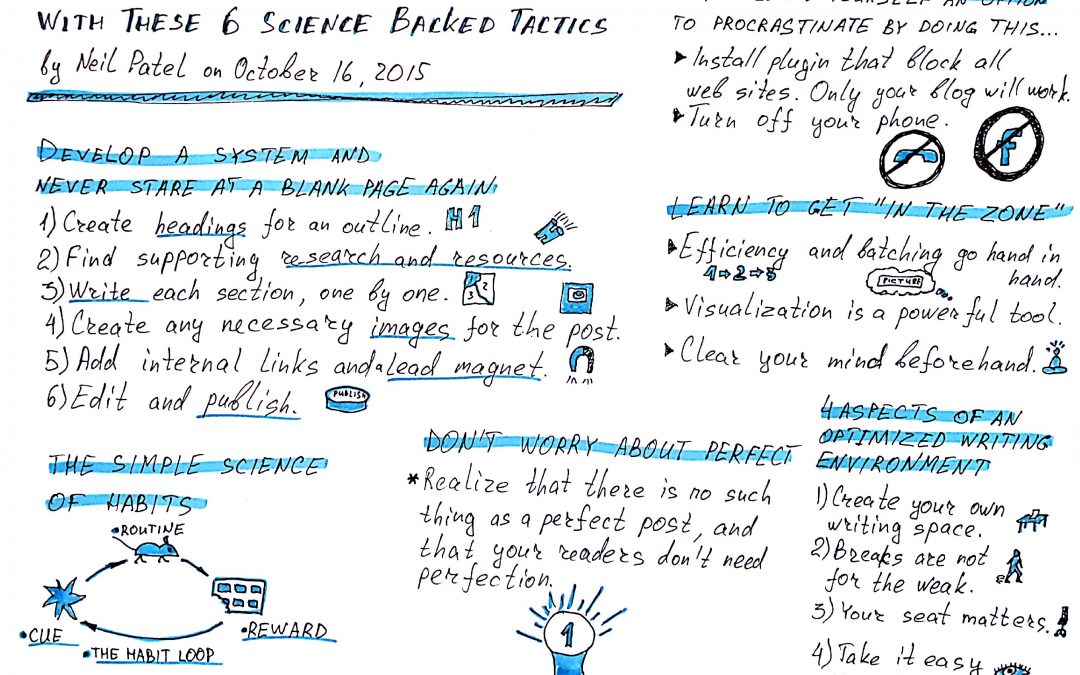 WITH THESE 6 SCIENCE BACKED TACTICS
by Neil Patel on October 16, 2015
DEVELOP A SYSTEM AND
NEVER STARE AT A BLANK PAGE AGAIN
1) Create headings for an outline. H1
2) Find supporting research and resources.
3) Write each section, one by one. 3 2
4) Create any necessary images for the post.
5) Add internal links and a lead magnet.
6) Edit and publish. PUBLISH
THE SIMPLE SCIENCE
OF HABITS
•ROUTINE
•CUE
•REWARD
•THE HABIT LOOP
DON'T WORRY ABOUT PERFECT
*Realize that there is no such
thing as a perfect post, and
that your readers don't need
perfection.
1
YOURSELF AN OPTION
TO PROCRASTINATE BY DOING THIS...
Install plugin that block all
web sites. Only your blog will work.
Turn off your phone.
f
LEARN TO GET "IN THE ZONE"
Efficiency and batching go hand in
hand.
1⇒2⇒3
PICTURE
Visualization is a powerful tool.
Clear your mind beforehand.
4 ASPECTS OF AN
OPTIMIZED WRITING
ENVIRONMENT
1) Create your own
writing space.
2) Breaks are not
for the weak.
3) Your seat matters.
4) Take it easy